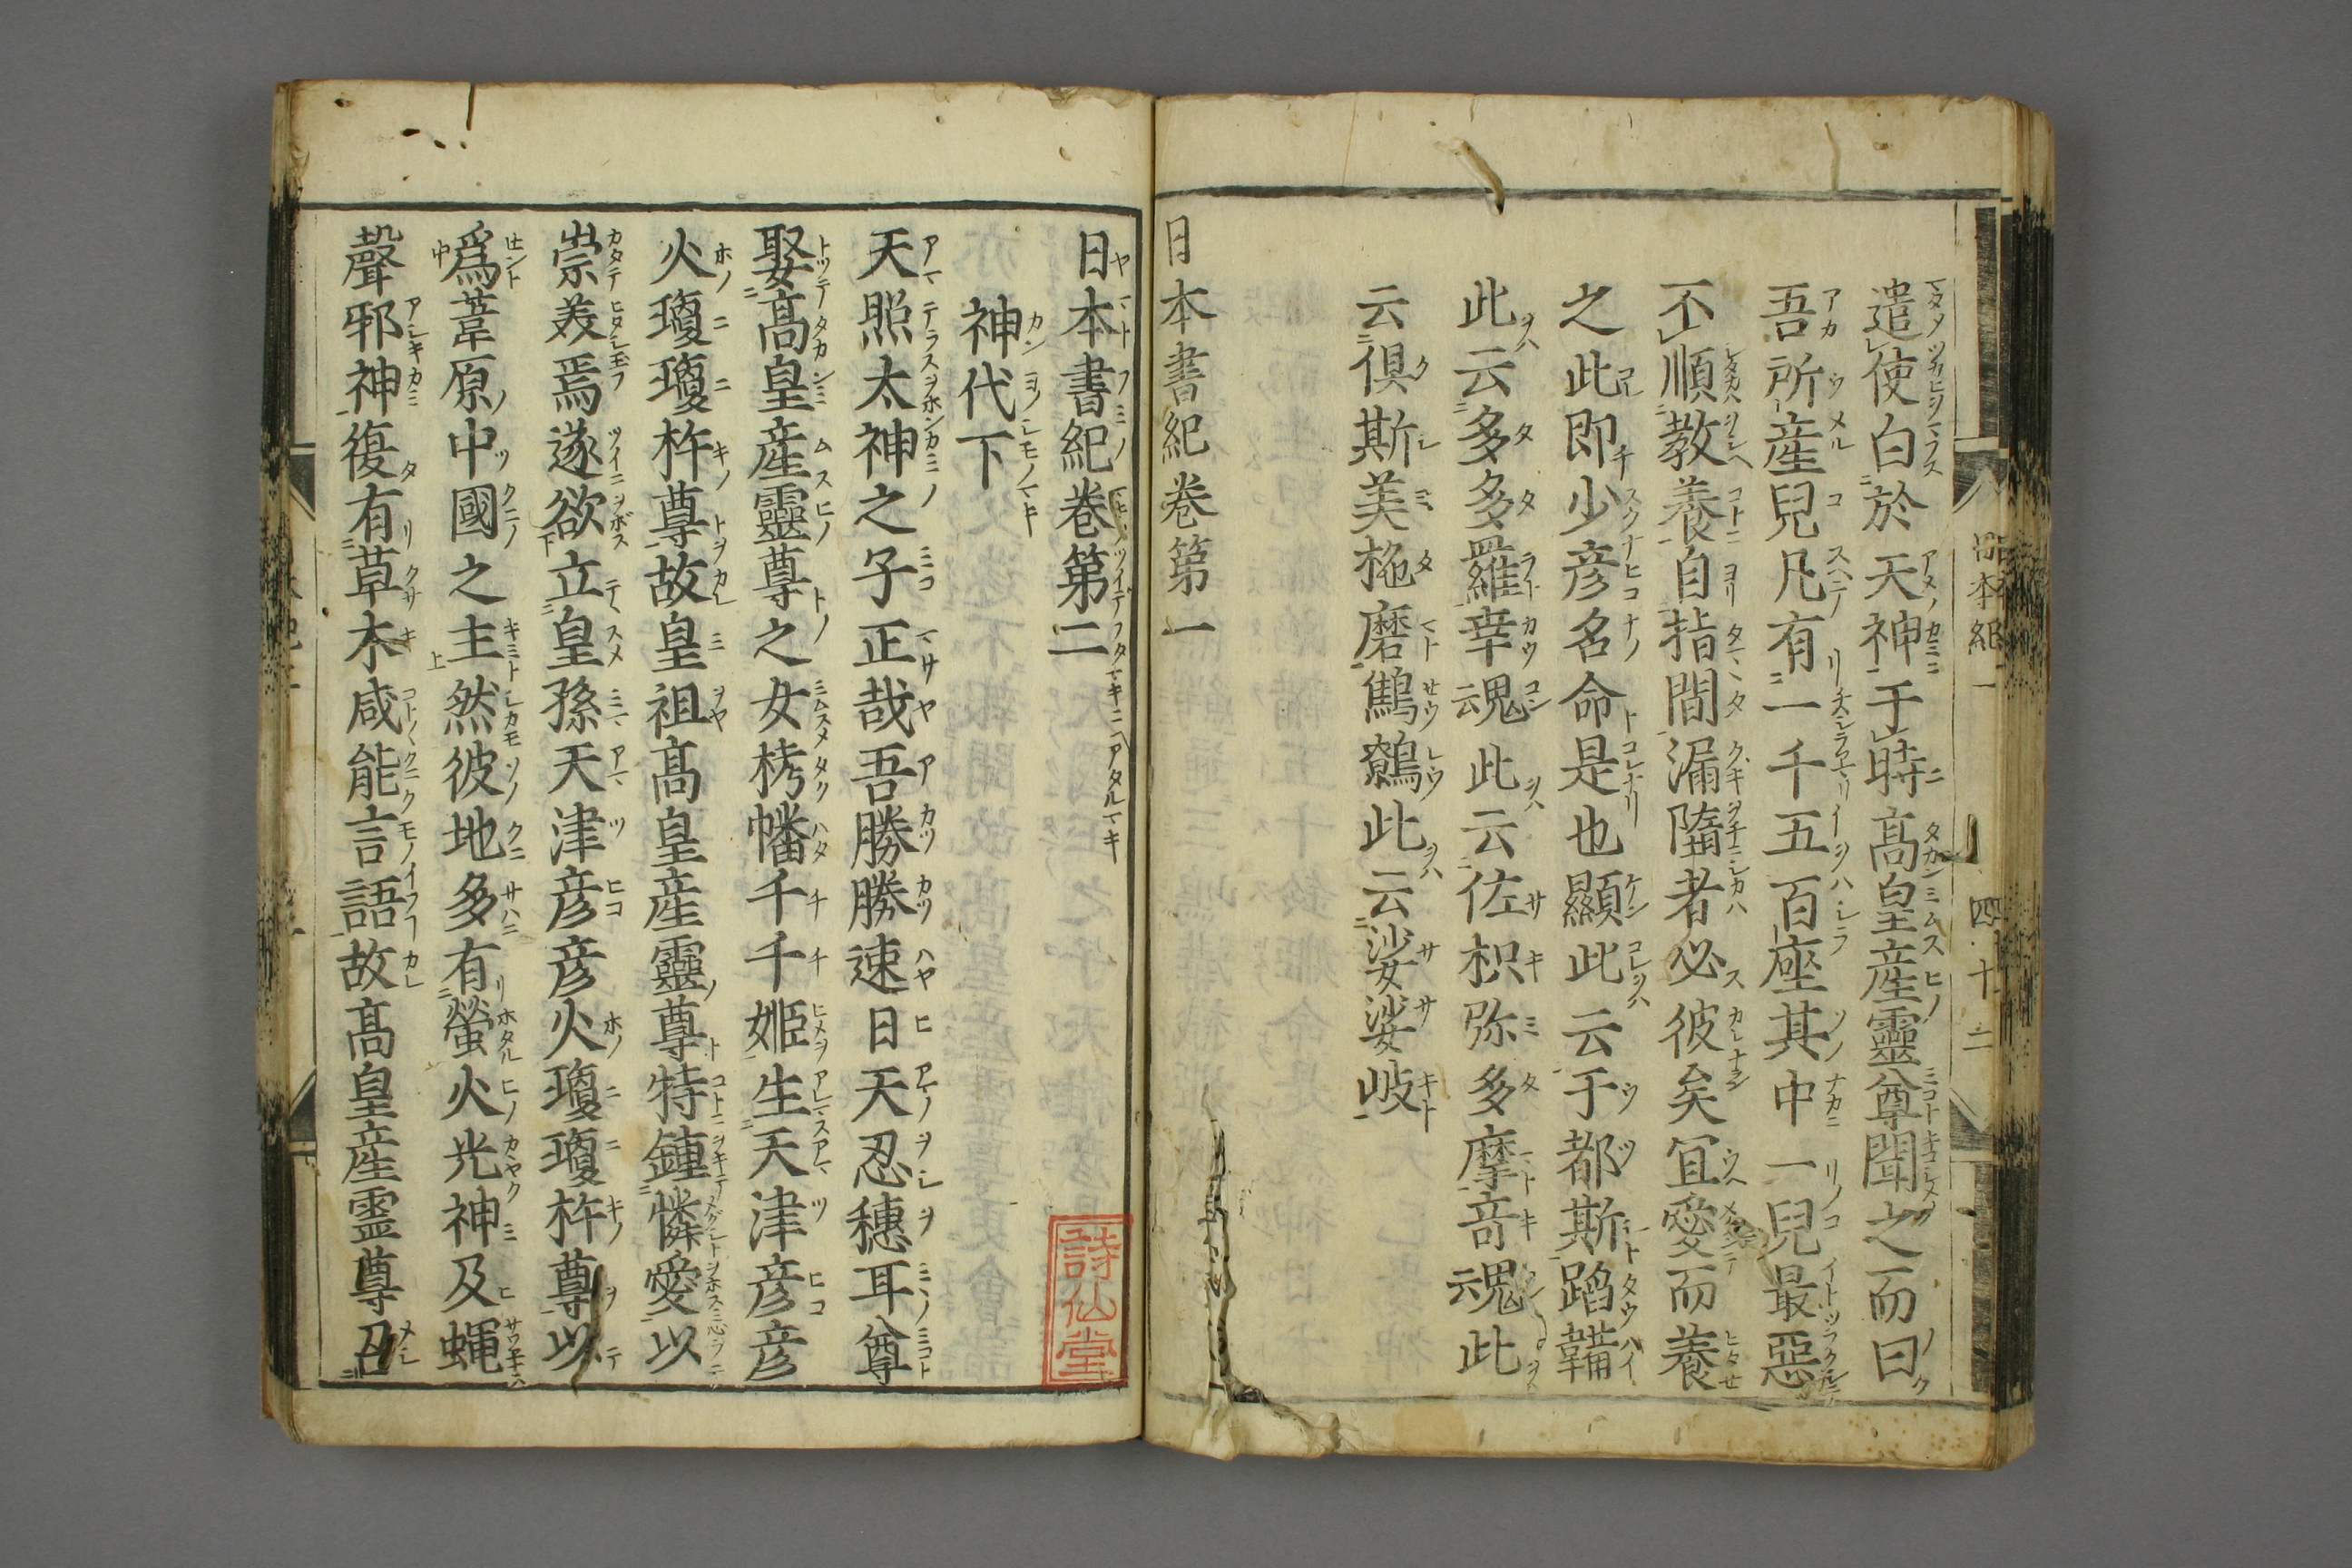 遣使白於天神于時髙皇産靈尊聞之而曰
吾所産兒凡有一千五百座其中一兒最惡
不順教養自指間漏墮者必彼矣冝愛而養
之此即少彦名命是也顯此云于都斯蹈鞴
此云多多羅幸魂此云佐枳弥多摩竒魂此
云俱斯美柂磨鷦鷯此云娑娑岐
日本書紀卷第一
日本紀一
四十三
日本書紀卷第二
神代下
天照太神之子正哉吾勝勝速日天忍穗耳尊
娶髙皇産靈尊之女栲幡千千姬生天津彦彦
火瓊瓊杵尊故皇祖髙皇産靈尊特鍾憐愛以
崇養焉遂欲立皇孫天津彦彦火瓊瓊杵尊以
爲葦原中國之主然彼地多有螢火光神及蝿
聲邪神復有草木咸能言語故髙皇産霊尊召
詩仙堂